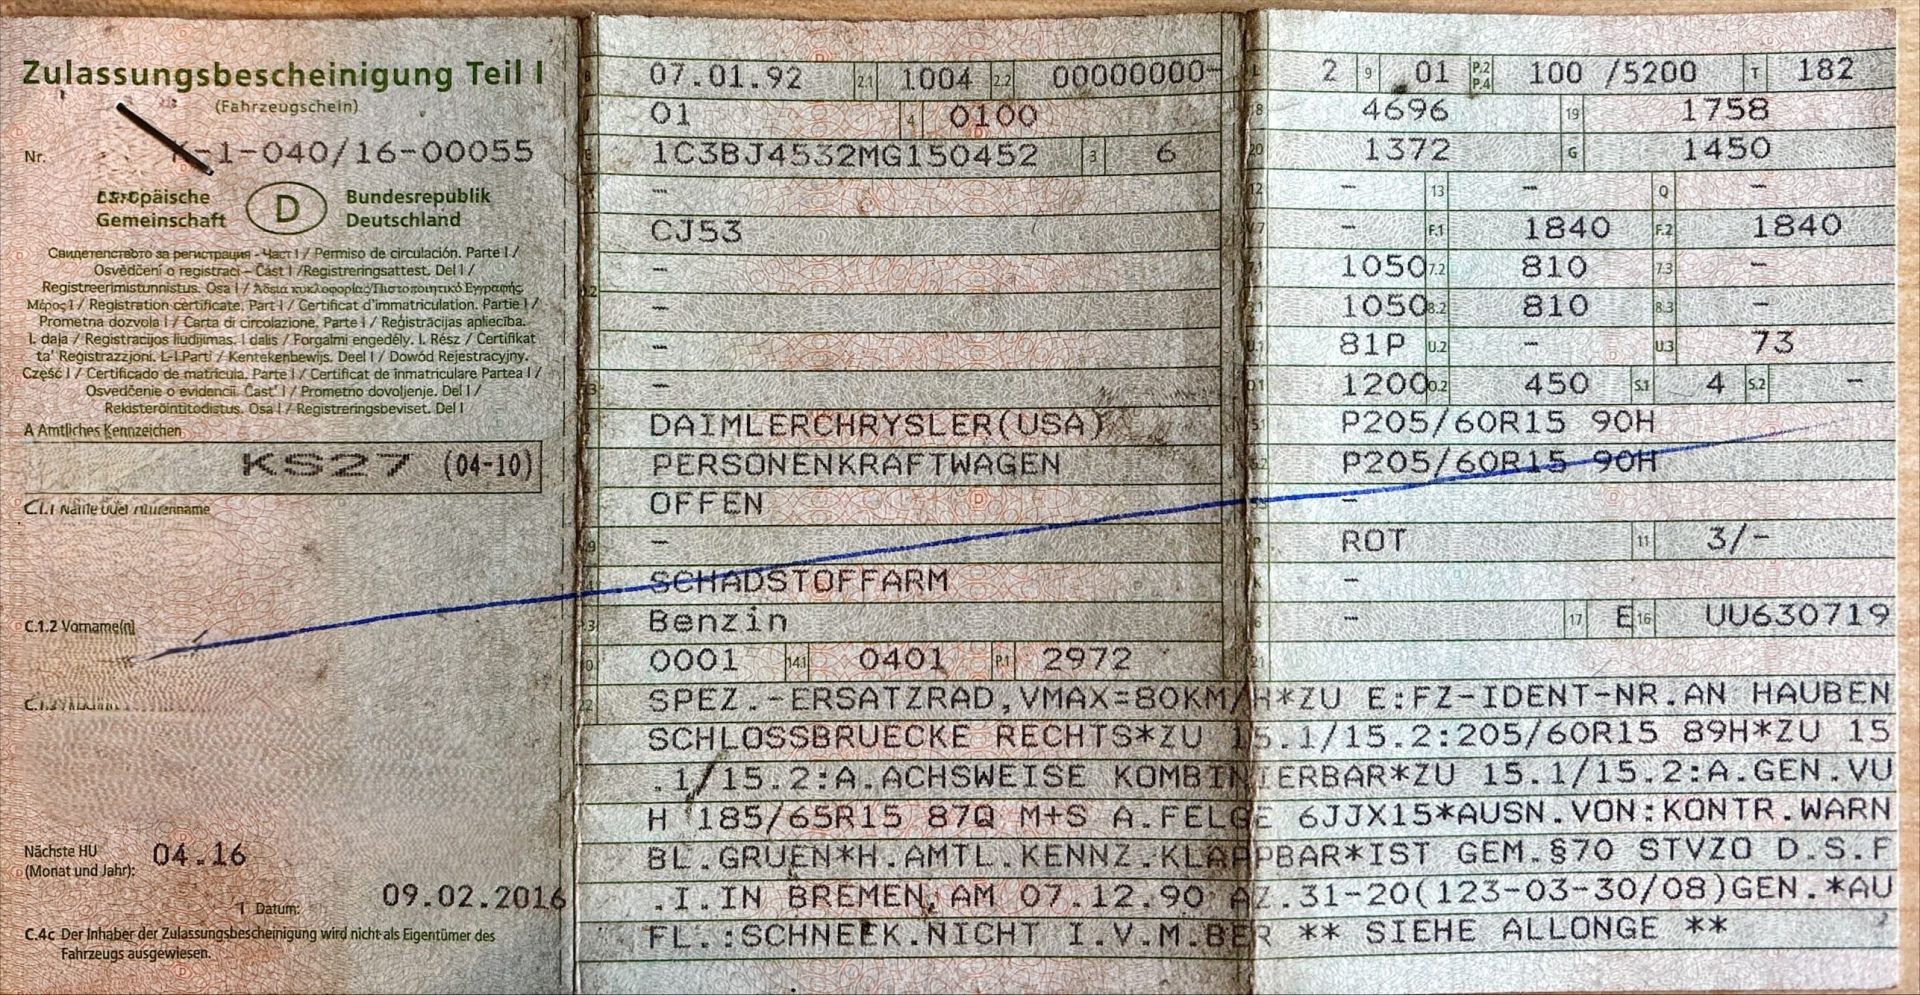 Zulassungsbescheinigung Teil I
(Fahrzeugschein)
Nr. K-1-040/16-00055
Europäische Gemeinschaft
D
Bundesrepublik Deutschland
Свидетелство за регистрация - Част I / Permiso de circulación. Parte I /
Osvědčení o registraci – Část I /Registreringsattest. Del I /
Registreerimistunnistus. Osa I / Άδεια κυκλοφορίας/Πιστοποιητικό Εγγραφής.
Μέρος I / Registration certificate. Part I / Certificat d'immatriculation. Partie I /
Prometna dozvola I / Carta di circolazione. Parte I / Reģistrācijas apliecība.
I. daļa / Registracijos liudijimas. I dalis / Forgalmi engedély. I. Rész / Ċertifikat
ta' Reġistrazzjoni. L-I Parti / Kentekenbewijs. Deel I / Dowód Rejestracyjny.
Część I / Certificado de matrícula. Parte I / Certificat de înmatriculare Partea I /
Osvedčenie o evidencii. Časť I / Prometno dovoljenje. Del I /
Rekisteröintitodistus. Osa I / Registreringsbeviset. Del I
A Amtliches Kennzeichen
KS27 (04-10)
C.1.1 Name oder Firmenname
C.1.2 Vorname(n)
Nächste HU
(Monat und Jahr): 04.16
Datum: 09.02.2016
C.4c Der Inhaber der Zulassungsbescheinigung wird nicht als Eigentümer des
Fahrzeugs ausgewiesen.
B 07.01.92 2.1 1004 2.2 00000000-
01 4 0100
E 1C3BJ4532MG150452 3 6
–
CJ53
–
–
–
–
DAIMLERCHRYSLER(USA)
PERSONENKRAFTWAGEN
OFFEN
–
SCHADSTOFFARM
Benzin
10 0001 14.1 0401 P.1 2972
L 2 9 01 P.2 P.4 100 /5200 T 182
18 4696 19 1758
20 1372 G 1450
12 – 13 – Q –
V.7 – F.1 1840 F.2 1840
7.1 1050 7.2 810 7.3 –
8.1 1050 8.2 810 8.3 –
U.1 81P U.2 – U.3 73
O.1 1200 O.2 450 S.1 4 S.2 –
15.1 P205/60R15 90H
15.2 P205/60R15 90H
–
R ROT 11 3/–
K –
6 – 17 E 16 UU630719
21
22 SPEZ.-ERSATZRAD,VMAX=80KM/H*ZU E:FZ-IDENT-NR.AN HAUBEN
SCHLOSSBRUECKE RECHTS*ZU 15.1/15.2:205/60R15 89H*ZU 15
.1/15.2:A.ACHSWEISE KOMBINIERBAR*ZU 15.1/15.2:A.GEN.VU
H 185/65R15 87Q M+S A.FELGE 6JJX15*AUSN.VON:KONTR.WARN
BL.GRUEN*H.AMTL.KENNZ.KLAPPBAR*IST GEM.§70 STVZO D.S.F
.I.IN BREMEN,AM 07.12.90 AZ.31-20(123-03-30/08)GEN.*AU
FL.:SCHNEEK.NICHT I.V.M.BER ** SIEHE ALLONGE **